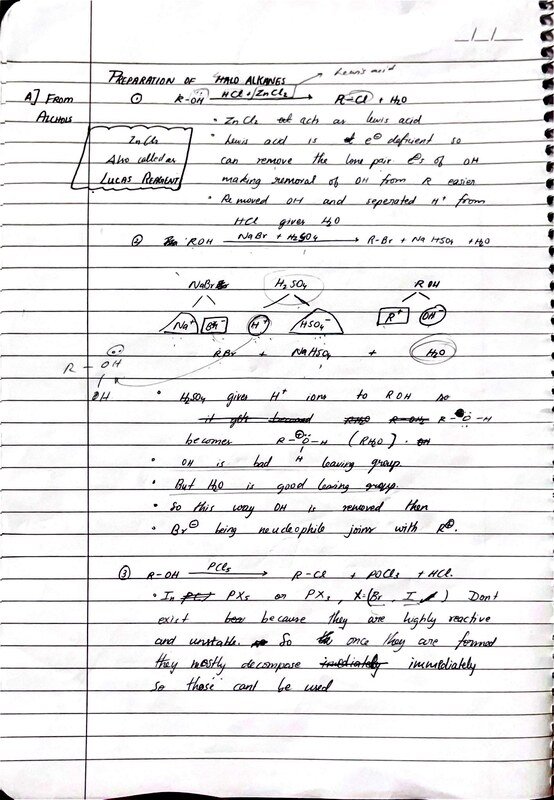 __/__/__
Lewis acid
PREPARATION OF HALO ALKANES
A] FROM ALCHOLS
① R-OH HCl + ZnCl2 → R-Cl + H2O
ZnCl2
Also called as
LUCAS REAGENT
• ZnCl2 act as lewis acid
• Lewis acid is e⊖ deficient so
can remove the lone pair e⊖s of OH
making removal of OH from R easier
• Removed OH and seperated H+ from
HCl gives H2O
② ROH NaBr + H2SO4 → R-Br + NaHSO4 + H2O
NaBr H2SO4 ROH
Na+ Br- H+ HSO4- R+ OH-
RBr + NaHSO4 + H2O
R - OH
H
• H2SO4 gives H+ ions to ROH so
it gets becomes RH2O R-OH2 R-O-H
becomes R-O-H (RH2O).
H
• OH is bad leaving group.
• But H2O is good leaving group.
• So this way OH is removed then
• Br⊖ being neucleophile joins with R⊕.
③ R-OH PCl5 → R-Cl + POCl3 + HCl.
• In PCl PX5 or PX3, X-(Br, I) Dont
exist because they are highly reactive
and unstable. So once they are formed
they mostly decompose imediately immediately
so those cant be used